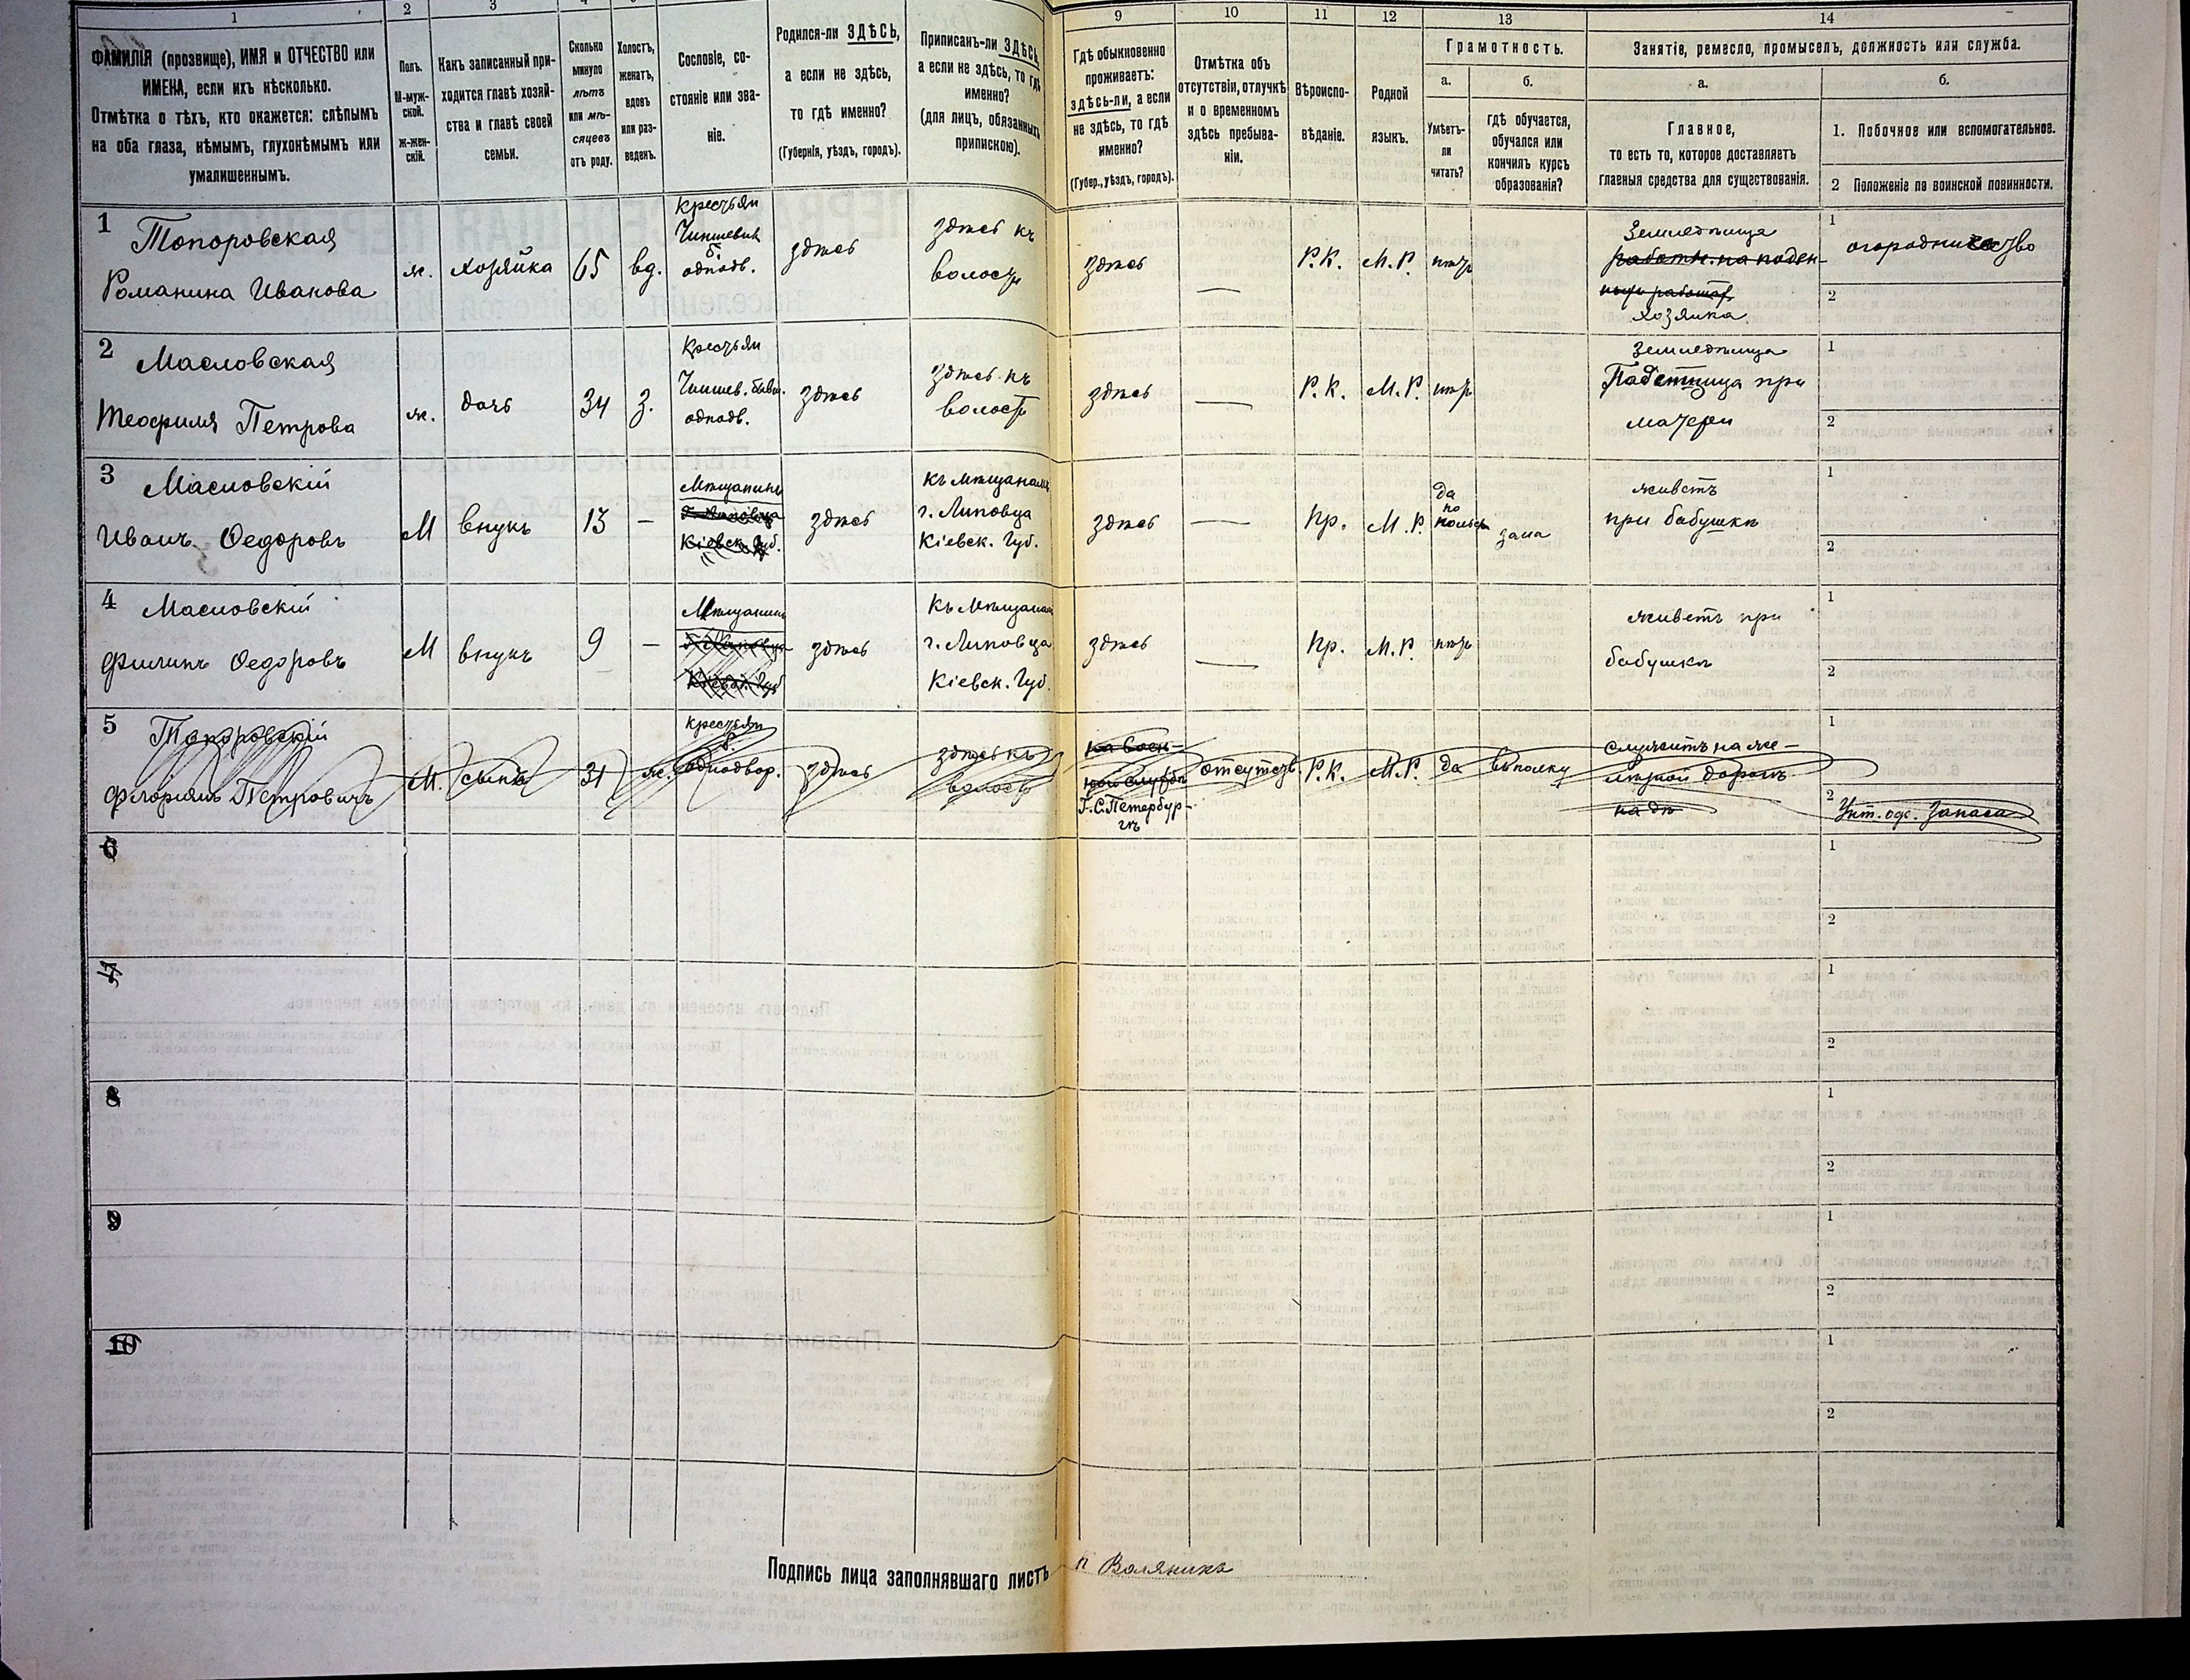 1
2
3
9
10
11
12
13
14
ФАМИЛІЯ (прозвище), ИМЯ и ОТЧЕСТВО или
ИМЕНА, если ихъ нѣсколько.
Отмѣтка о тѣхъ, кто окажется: слѣпымъ
на оба глаза, нѣмымъ, глухонѣмымъ или
умалишеннымъ.
Полъ.
М-муж-
ской.
ж-жен-
скій.
Какъ записанный при-
ходится главѣ хозяй-
ства и главѣ своей
семьи.
Сколько
минуло
лѣтъ
или мѣ-
сяцевъ
отъ роду.
Холостъ,
женатъ,
вдовъ
или раз-
веденъ.
Сословіе, со-
стояніе или зва-
ніе.
Родился-ли ЗДѢСЬ,
а если не здѣсь,
то гдѣ именно?
(Губернія, уѣздъ, городъ).
Приписанъ-ли ЗДѢСЬ,
а если не здѣсь, то гдѣ
именно?
(для лицъ, обязанныхъ
припискою).
Гдѣ обыкновенно
проживаетъ:
здѣсь-ли, а если
не здѣсь, то гдѣ
именно?
(Губер., уѣздъ, городъ).
Отмѣтка объ
отсутствіи, отлучкѣ
и о временномъ
здѣсь пребыва-
ніи.
Вѣроиспо-
вѣданіе.
Родной
языкъ.
Грамотность.
а.
Умѣетъ-
ли
читать?
б.
гдѣ обучается,
обучался или
кончилъ курсъ
образованія?
Занятіе, ремесло, промыселъ, должность или служба.
а.
Главное,
то есть то, которое доставляетъ
главныя средства для существованія.
б.
1. Побочное или вспомогательное.
2 Положеніе по воинской повинности.
1
Топоровская
Романина Иванова
ж.
хозяйка
65
вд.
крестьян
Чиншевик
б.
одподв.
здѣсь
здѣсь къ
волости
здѣсь
—
Р.К.
М.Р.
нѣтъ
Земледѣлица
работн. на поден-
ныхъ работах
хозяйка
1
огородничество
2
2
Масловская
Теофиля Петрова
ж.
дочь
34
з.
Крестьян
Чиншев. бывш.
одподв.
здѣсь
здѣсь къ
волости
здѣсь
—
Р.К.
М.Р.
нѣтъ
Земледѣлица
при
матери
1
2
3
Масловскій
Иванъ Ѳедоровъ
М
внукъ
13
—
Мѣщанинъ
г. Липовца
Кіевск. Губ.
здѣсь
къ Мѣщанамъ
г. Липовца
Кіевск. Губ.
здѣсь
—
Пр.
М.Р.
да
по
польск
дома
живетъ
при бабушкѣ
1
2
4
Масловскій
Филипъ Ѳедоровъ
М
внукъ
9
—
Мѣщанинъ
г. Липовца
Кіевск. Губ
здѣсь
къ Мѣщанамъ
г. Липовца
Кіевск. Губ.
здѣсь
—
Пр.
М.Р.
нѣтъ
живетъ при
бабушкѣ
1
2
5
Топоровскій
Флоріянъ Петровичъ
М.
сынъ
31
ж.
крестьян
б.
однодвор.
здѣсь
здѣсь къ
волости
на воен-
ной службѣ
Г. С. Петербур-
гѣ
отсутств.
Р.К.
М.Р.
да
въ полку
служитъ на же-
лѣзной дорогѣ
1
2
Унт. оф. Запаса
6
1
2
7
1
2
8
1
2
9
1
2
10
1
2
Подпись лица заполнявшаго листъ